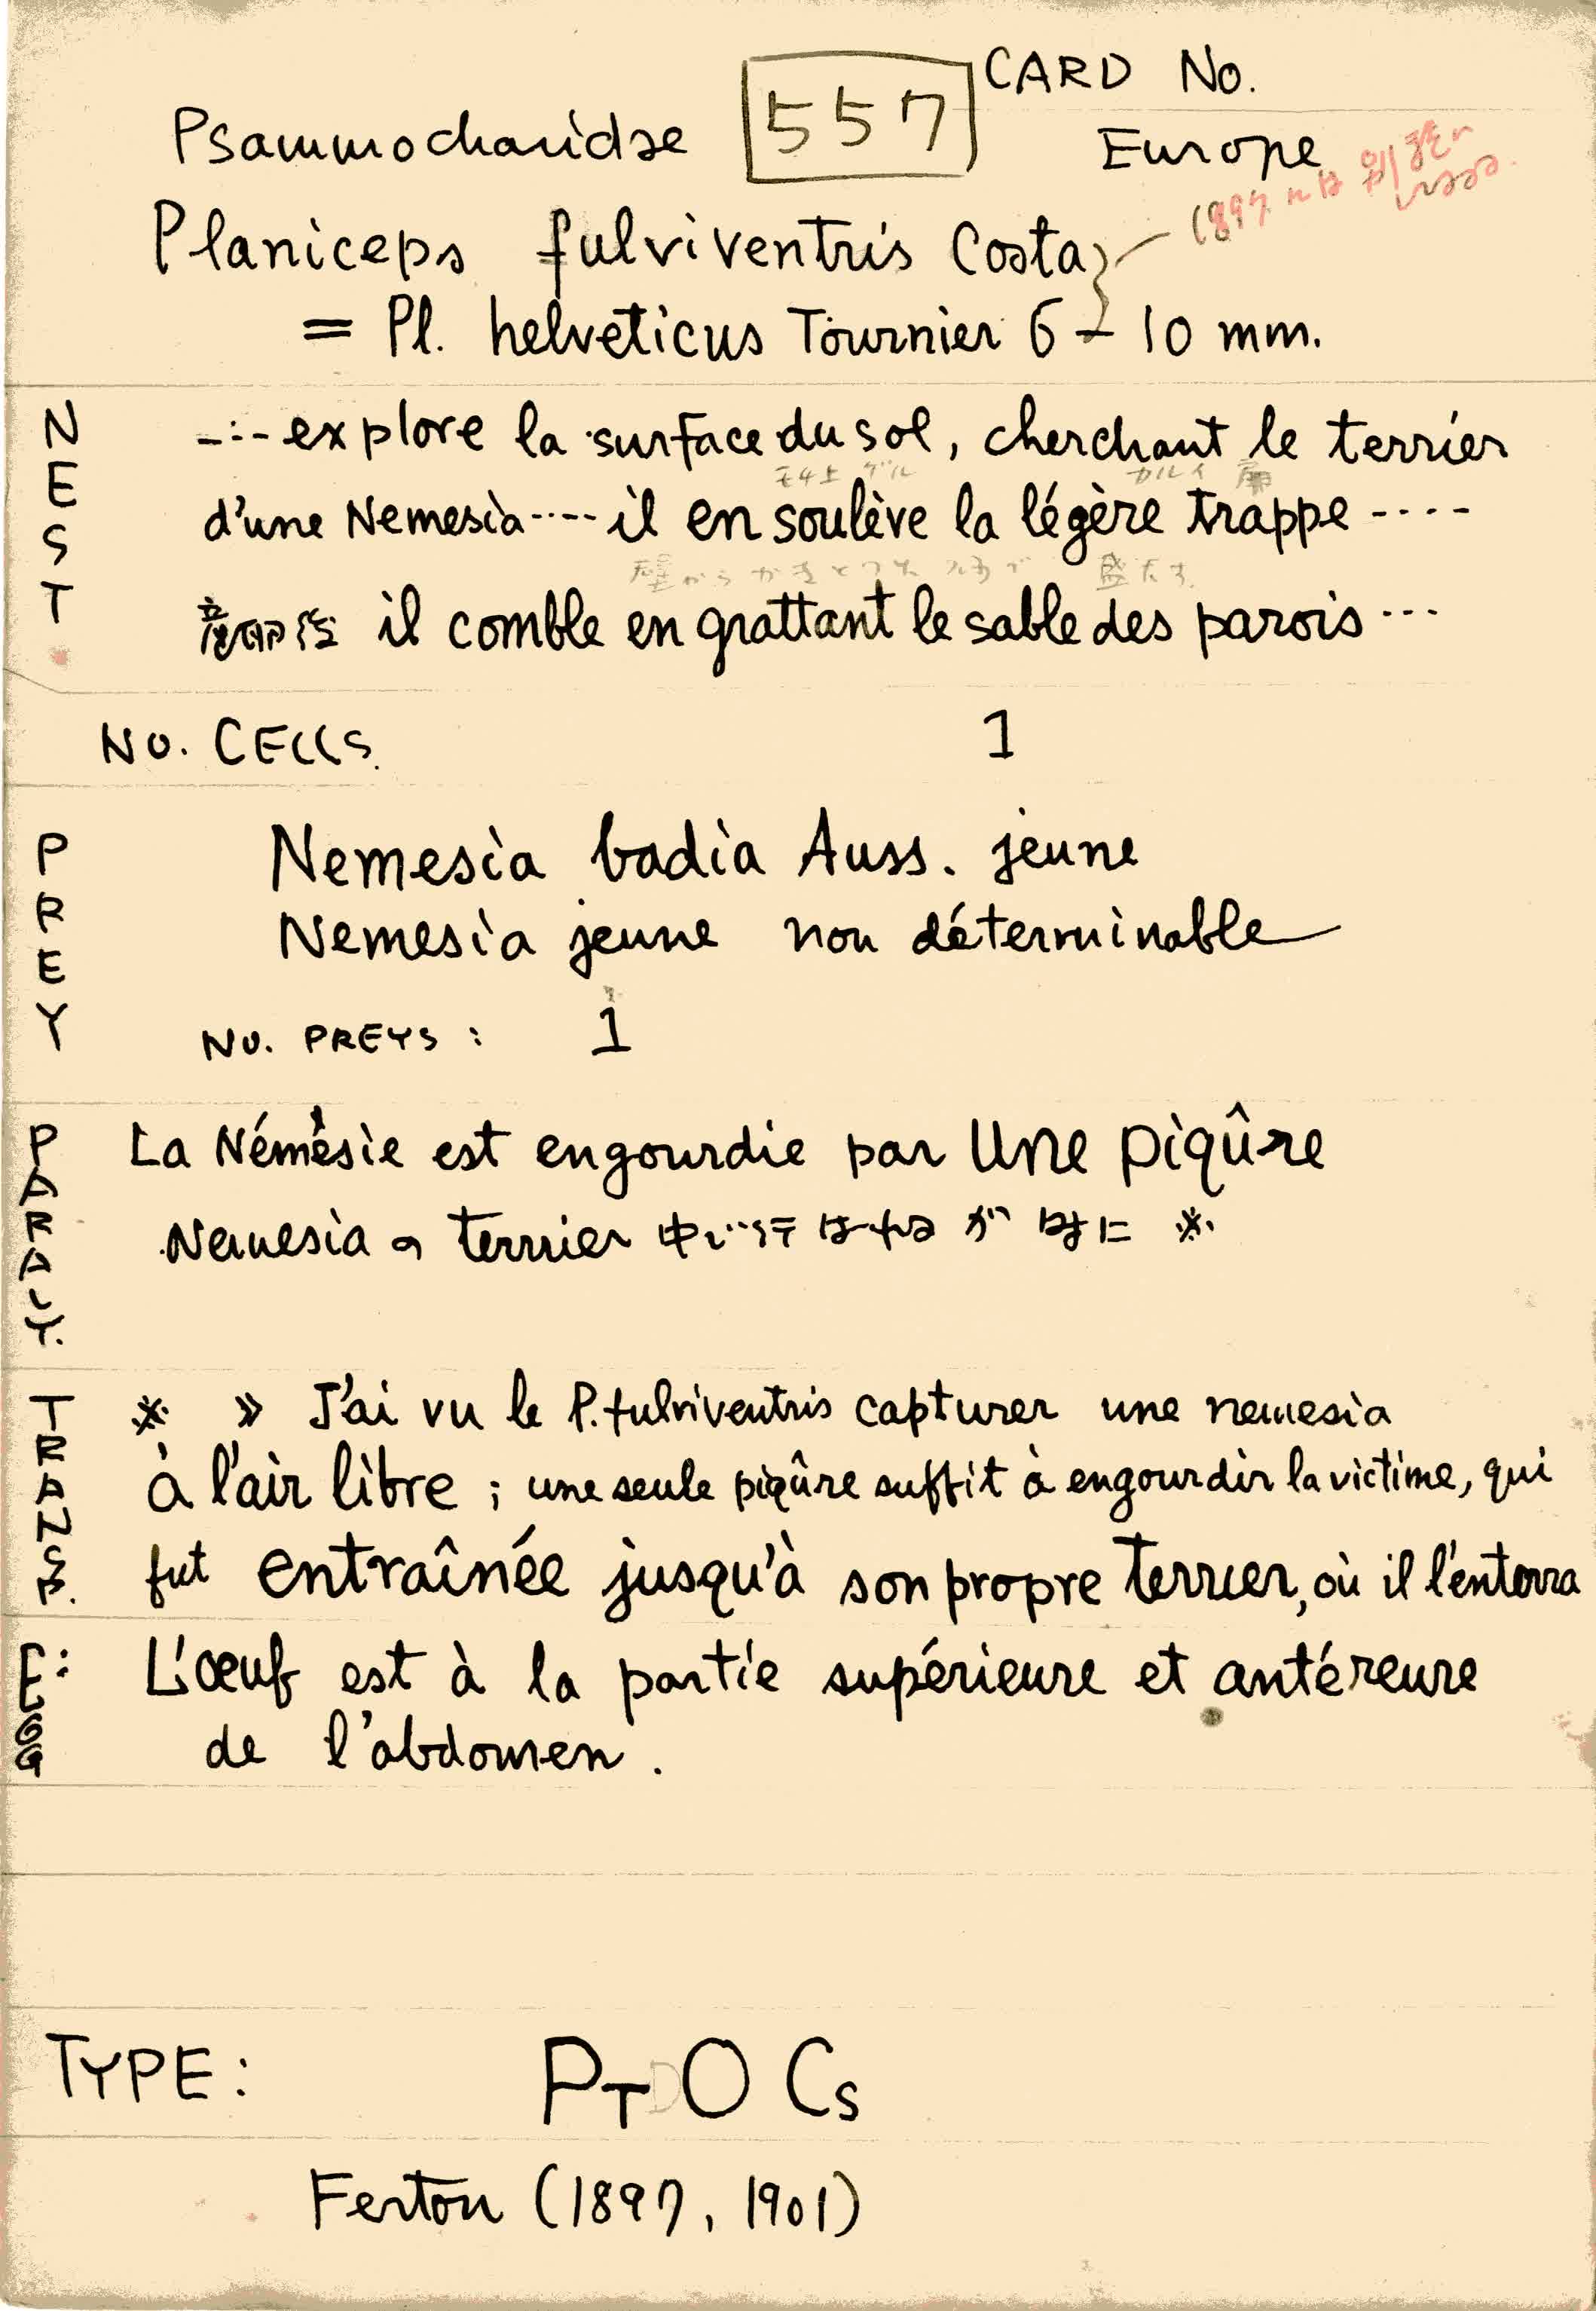 CARD No.
Psammocharidae 557 Europe
1897には別種に
Planiceps fulviventris Costa
= Pl. helveticus Tournier 6-10 mm.
NEST.
-:- explore la surface du sol, cherchant le terrier
モチ上ゲル カルイ 扉
d'une Nemesia ---- il en soulève la légère trappe ----
壁からかきとった 盛たす
産卵后 il comble en grattant le sable des parois ---
NO. CELLS. 1
PREY
Nemesia badia Auss. jeune
Nemesia jeune non déterminable
NO. PREYS : 1
PARALY.
La Némésie est engourdie par une piqûre
Nemesia の terrier 中で行はれるが 時に ※
TRANSP.
※ » J'ai vu le P. fulviventris capturer une nemesia
à l'air libre ; une seule piqûre suffit à engourdir la victime, qui
fut entraînée jusqu'à son propre terrier, où il l'enterra
EGG:
L'œuf est à la partie supérieure et antéreure
de l'abdomen.
TYPE : PT O Cs
Ferton (1897, 1901)